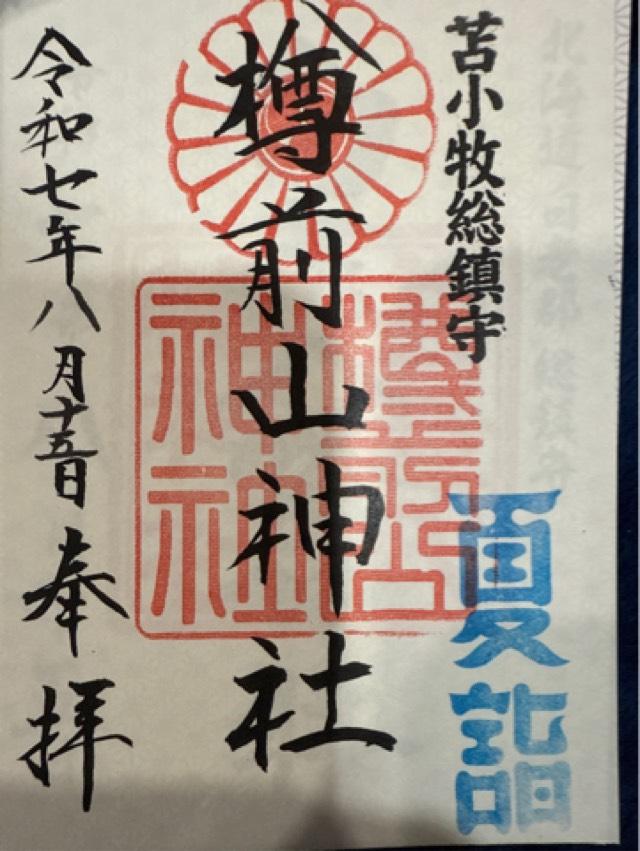 苫小牧総鎮守
夏詣
樽前山神社
樽前山神社
令和七年八月十五日 奉拝